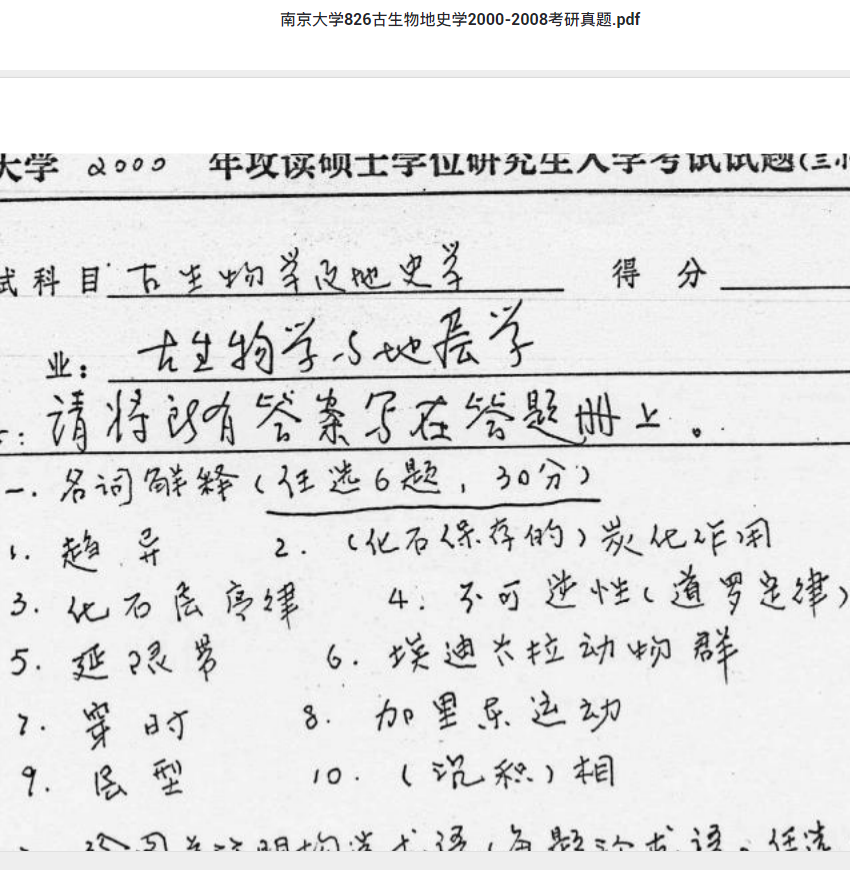 南京大学826古生物地史学2000-2008考研真题.pdf
大学 2000 年攻读硕士学位研究生入学考试试题(三小
试科目 古生物学及地史学 得分
业: 古生物学与地层学
: 请将所有答案写在答题册上。
一. 名词解释(任选6题, 30分)
1. 趋异 2. (化石保存的)炭化作用
3. 化石层序律 4. 不可逆性(道罗定律)
5. 延限带 6. 埃迪卡拉动物群
7. 穿时 8. 加里东运动
9. 层型 10. (沉积)相